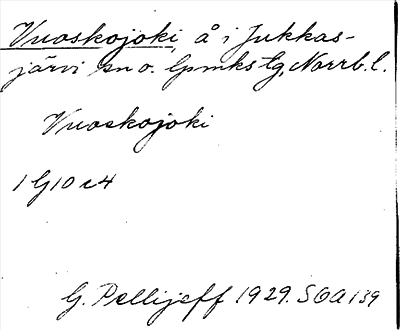 Vuoskojoki, å i Jukkas-
järvi sn o. lpmkstg, Norrb. l.
Vuoskojoki
G. Pellijeff 1929. SOA 139